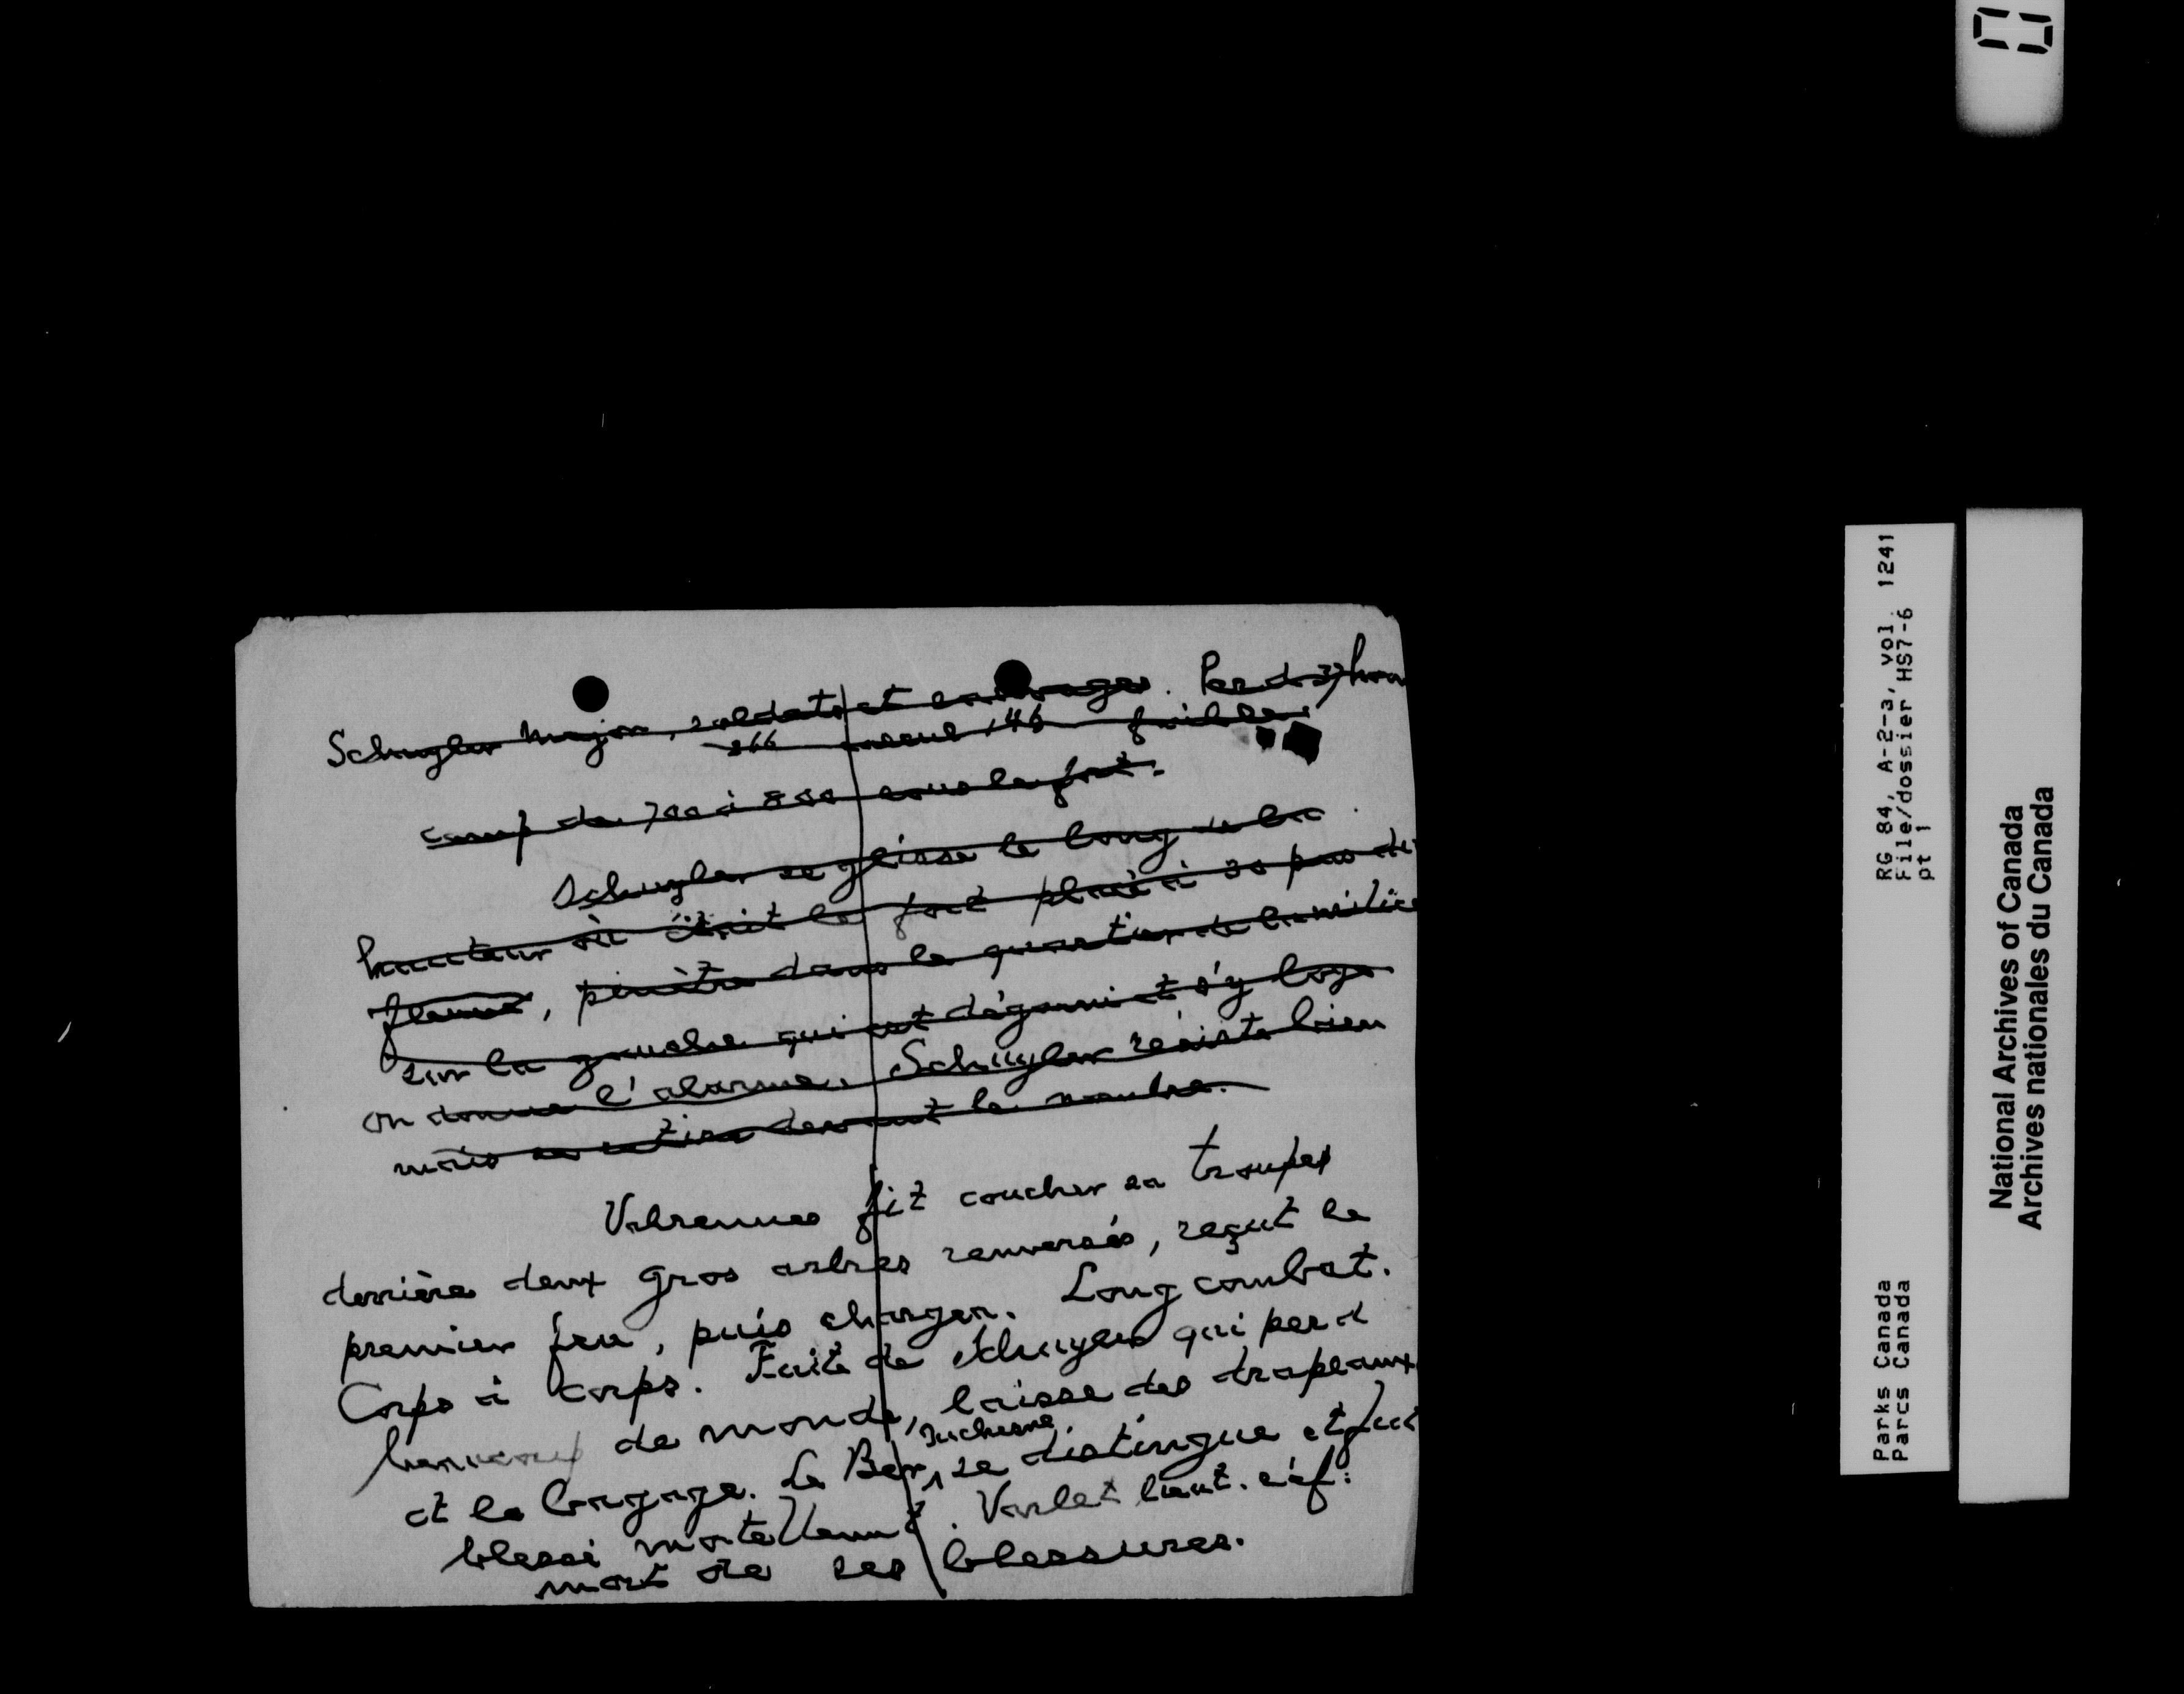 Schuyler Major, soldats et sauvages. Perd 37 hom
266 146 fusiliers
camp de 700 à 800 sous le fort.
Schuyler se glisse le long de la
hauteur où était le fort placé à 30 pas du
fleuve, pénètre dans le quartier de la milice
sur la gauche qui est dégarni et s'y loge
on donne l'alarme. Schuyler résiste bien
mais se retire devant le nombre.
Valrennes fit coucher sa troupes
derrière deux gros arbres renversés, reçut le
premier feu, puis charger. Long combat.
Corps à corps. Fuite de Schuyler qui perd
beaucoup de monde, laisse des drapeaux
et le bagage. Le Ber Duchesne, se distingue et fut
blessé mortellemt. Varlet lieut. réf:
mort de ses blessures.
RG 84, A-2-a, vol 1241
File/dossier HS7-6
pt 1
Parks Canada
Parcs Canada
National Archives of Canada
Archives nationales du Canada